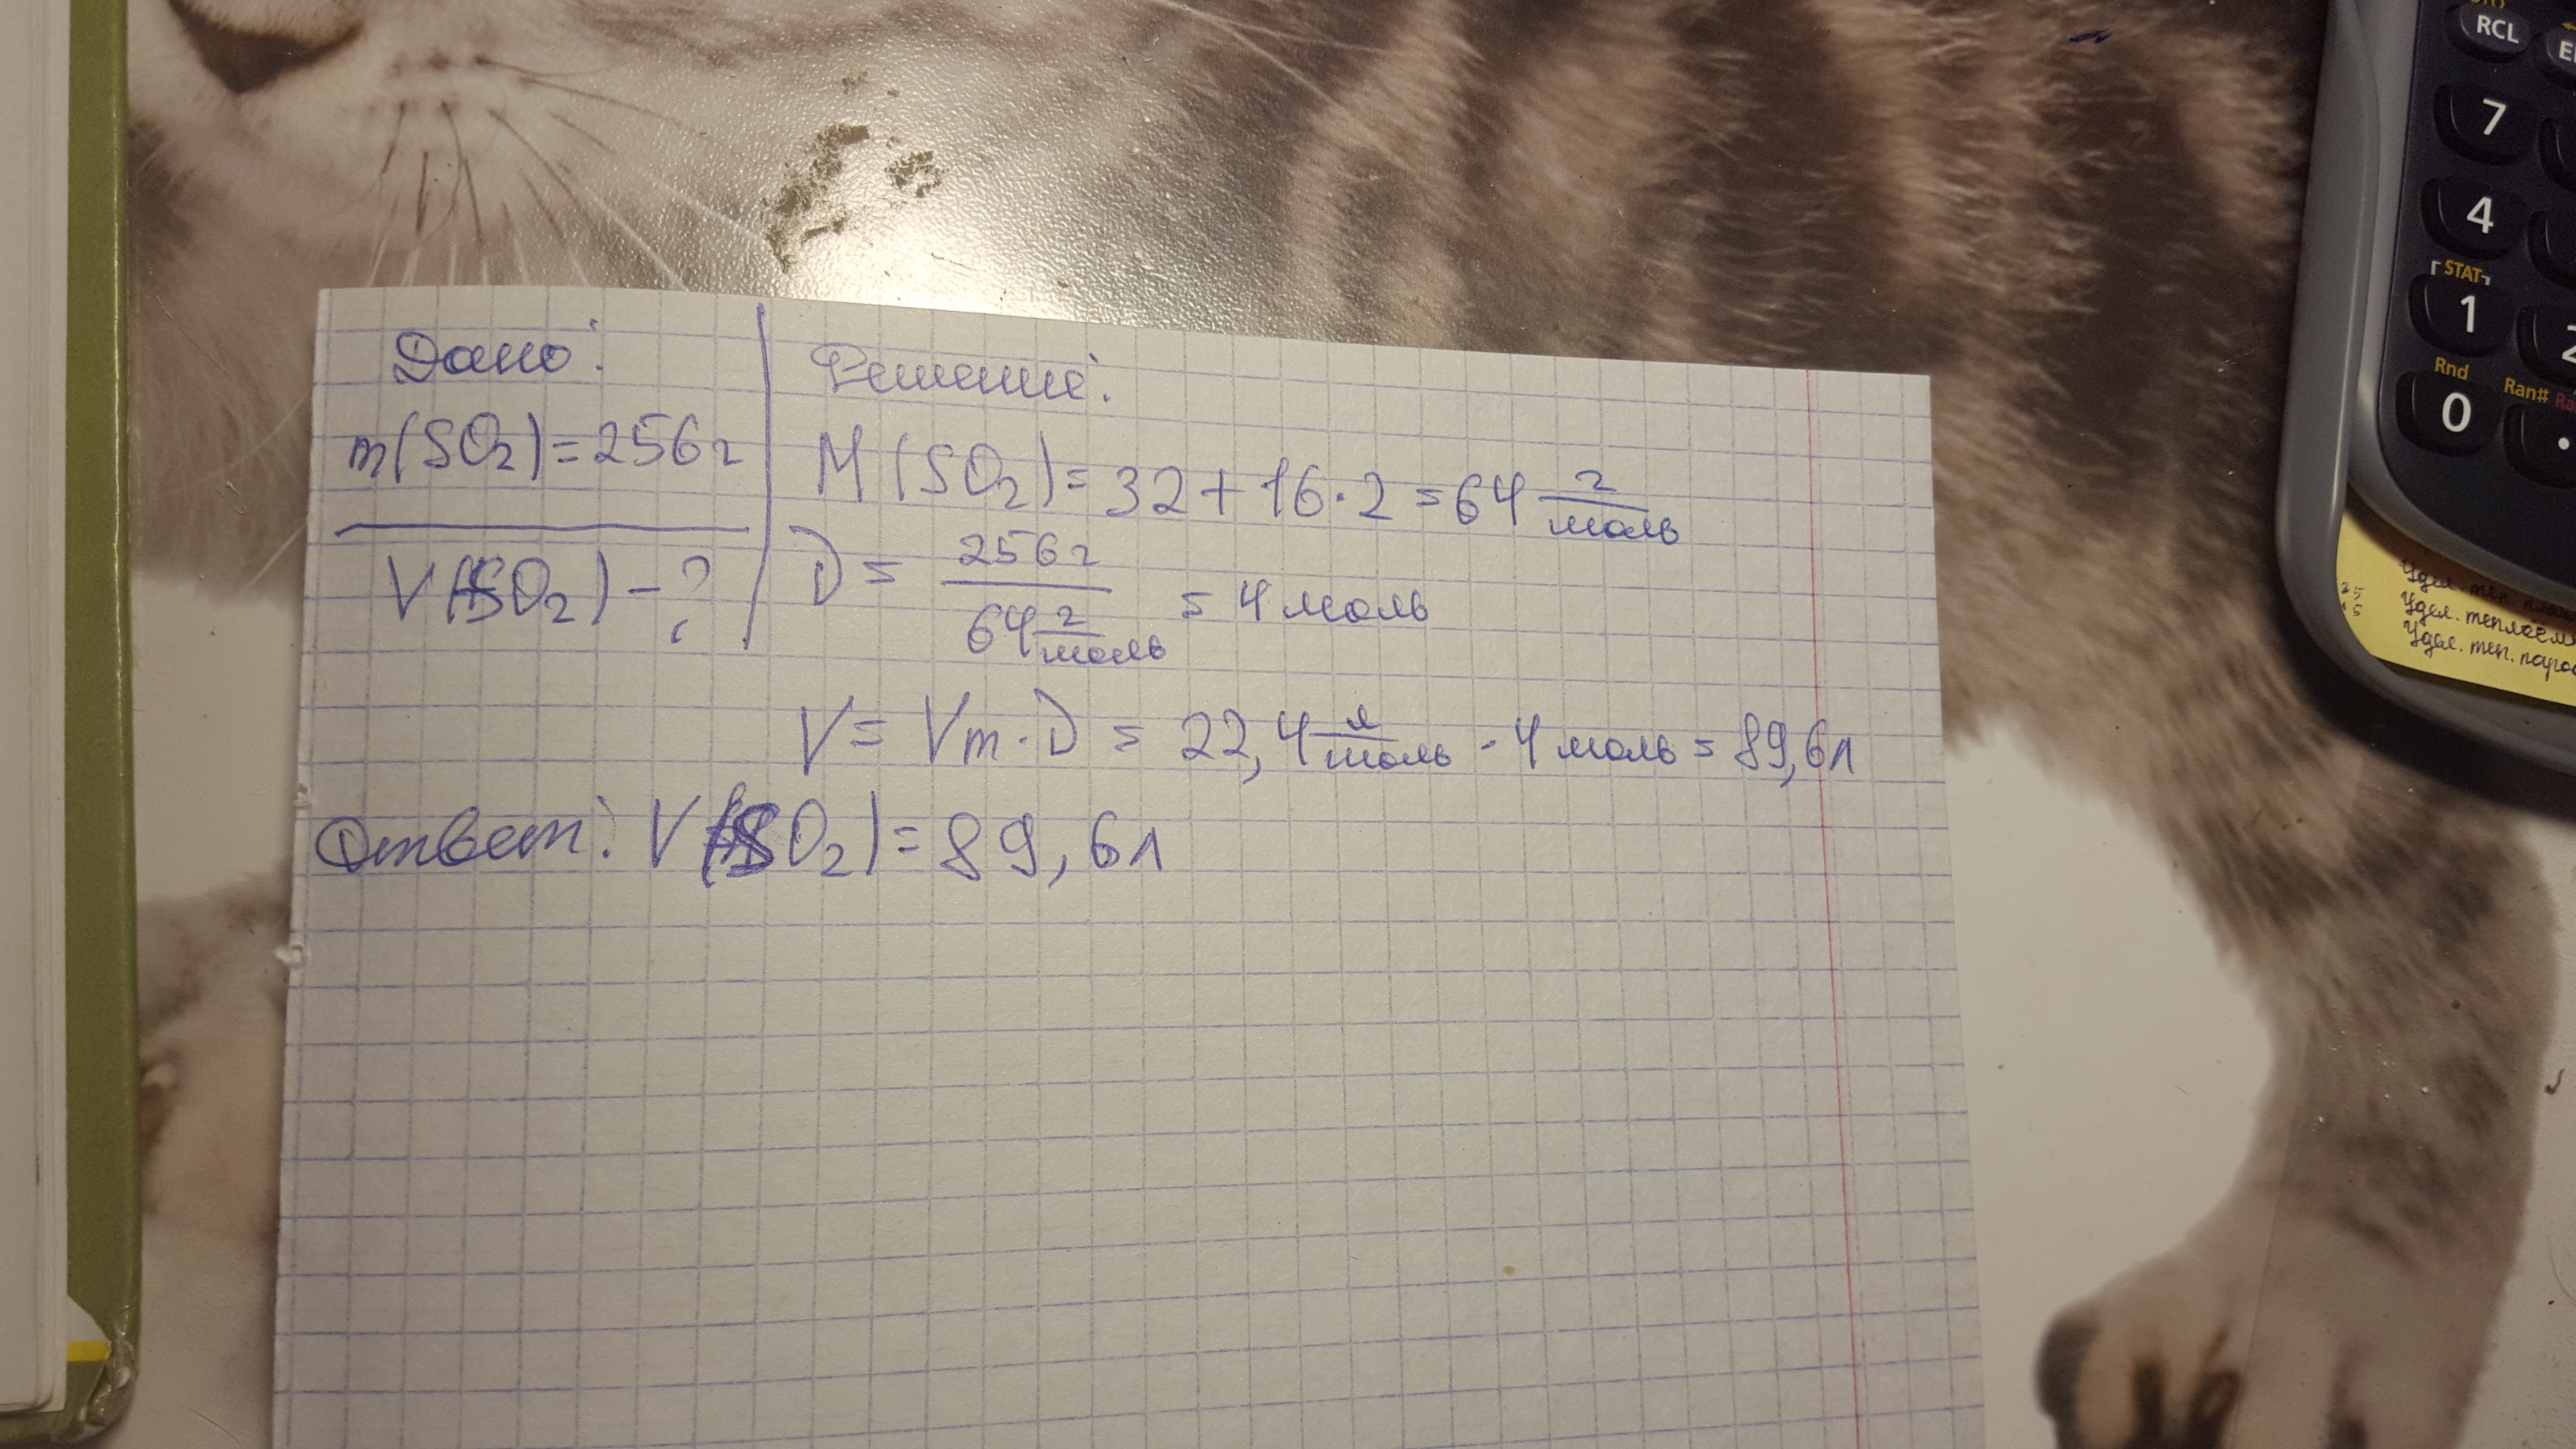 Дано:
m(SO₂)=256г
V(SO₂)-?
Решение:
M(SO₂)=32+16·2=64 г/моль
D = 256г / 64 г/моль = 4 моль
V = Vm·D = 22,4 л/моль · 4 моль = 89,6л
Ответ: V(SO₂)=89,6л
RCL
7
4
STAT
1
2
Rnd
Ran#
0
.
Удел. теп.
Удел. теплоём
Удел. теп. паро